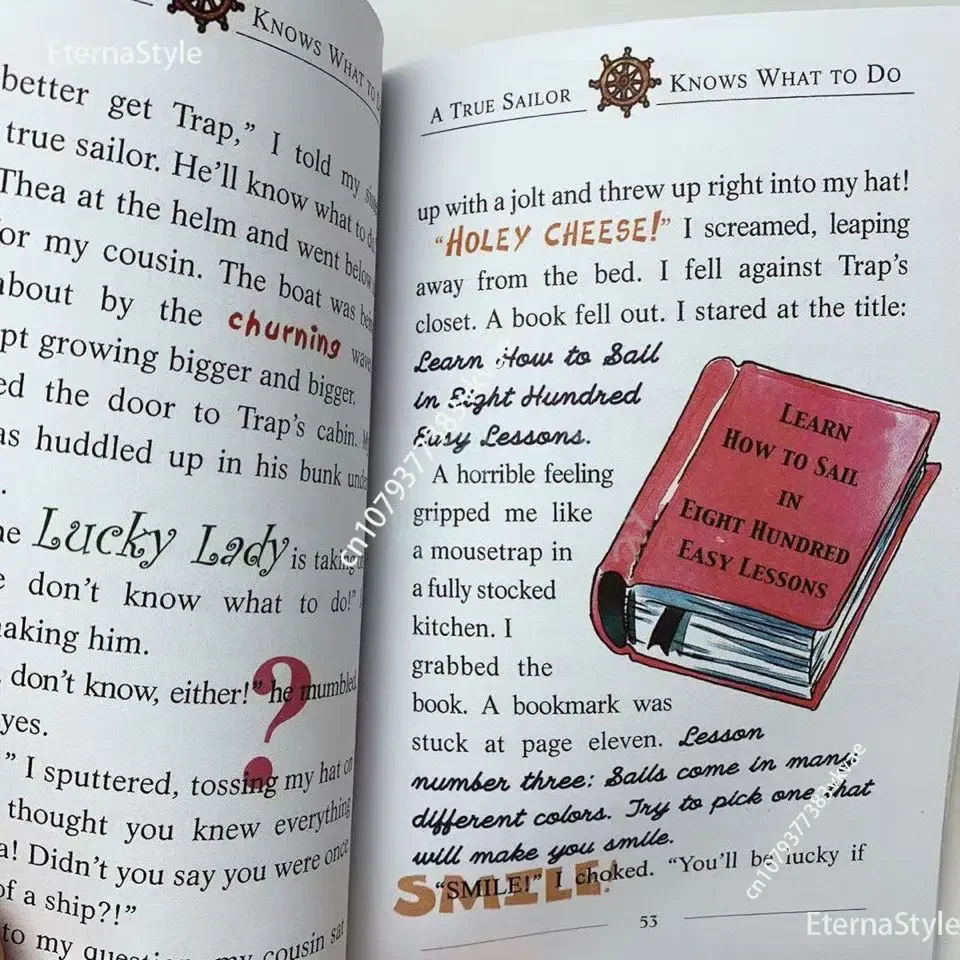 EternaStyle
KNOWS WHAT TO
better get Trap,” I told my
true sailor. He’ll know what to
Thea at the helm and went below
for my cousin. The boat was
about by the churning
growing bigger and bigger.
the door to Trap’s cabin.
huddled up in his bunk
Lucky Lady is
don’t know what to do!”
him.
don’t know, either!” he mumbled
?
” I sputtered, tossing my hat on
thought you knew everything
Didn’t you say you were once
of a ship?!”
to my question, my cousin sat
A TRUE SAILOR KNOWS WHAT TO DO
up with a jolt and threw up right into my hat!
“HOLEY CHEESE!” I screamed, leaping
away from the bed. I fell against Trap’s
closet. A book fell out. I stared at the title:
Learn How to Sail
in Eight Hundred
Easy Lessons.
LEARN
HOW TO SAIL
IN
EIGHT HUNDRED
EASY LESSONS
A horrible feeling
gripped me like
a mousetrap in
a fully stocked
kitchen. I
grabbed the
book. A bookmark was
stuck at page eleven. Lesson
number three: Sails come in many
different colors. Try to pick one that
will make you smile.
“SMILE!” I choked. “You’ll be lucky if
SMILE!
53
EternaStyle